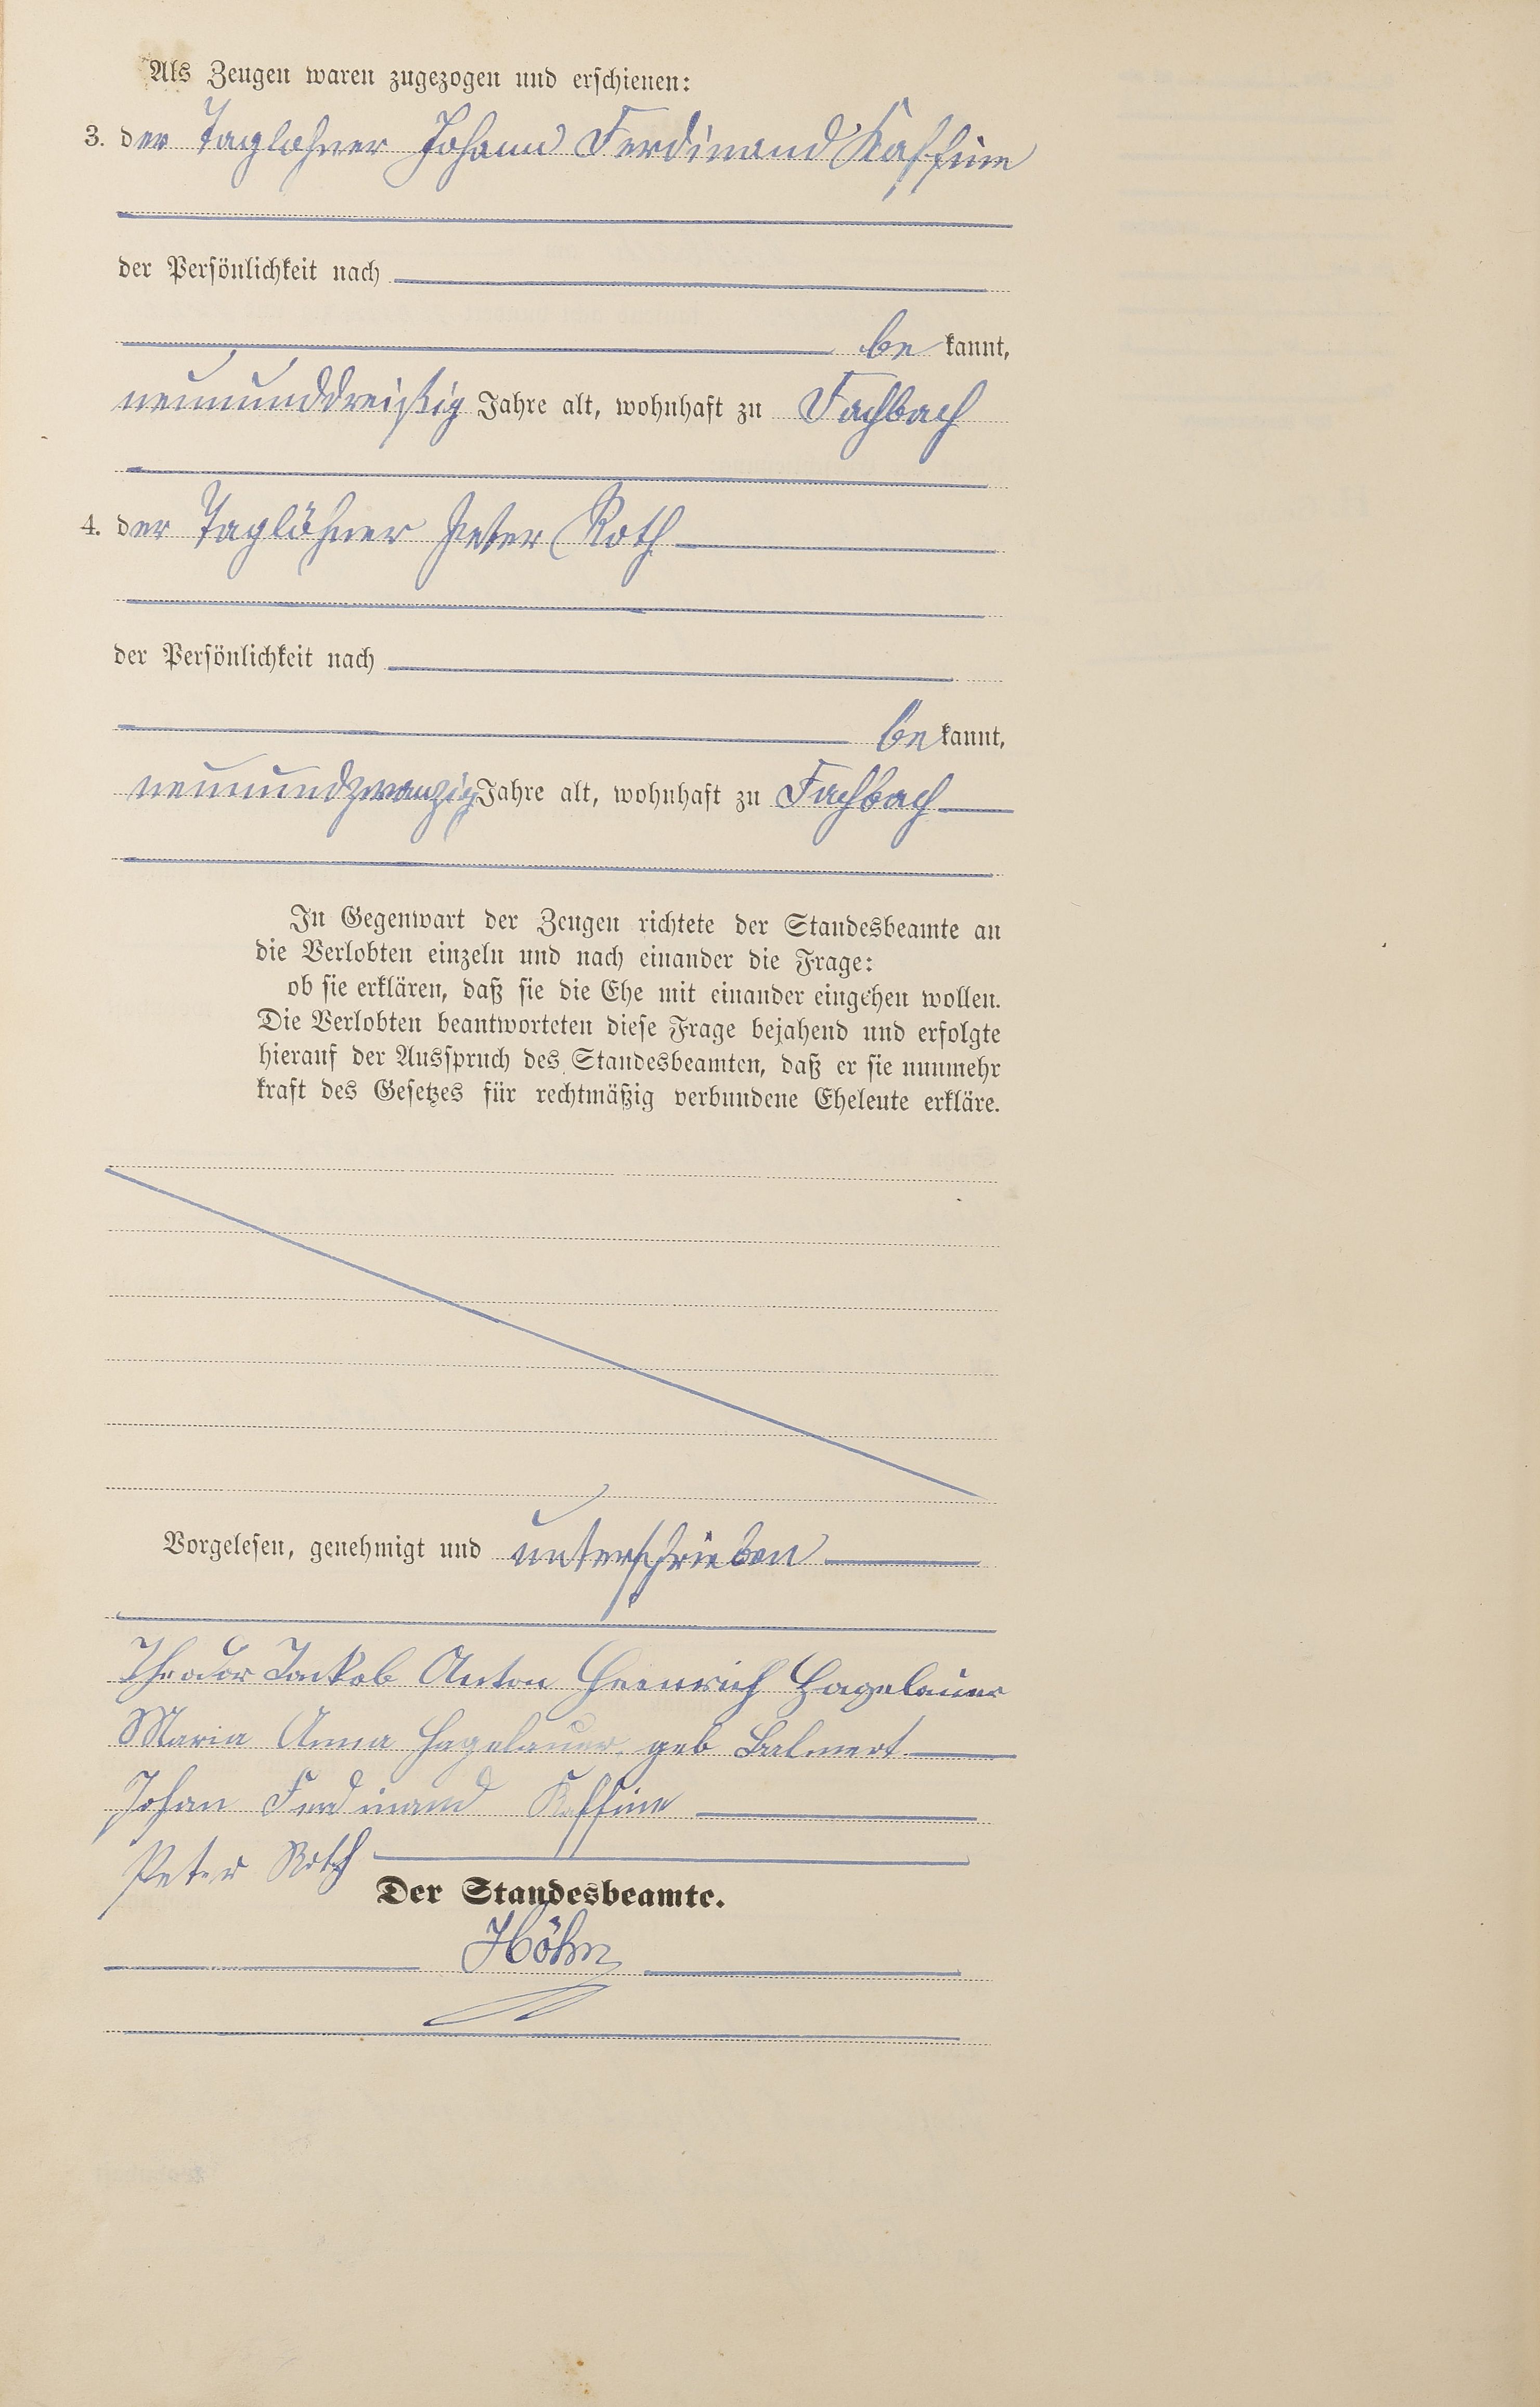 Als Zeugen waren zugezogen und erschienen:
3. der Taglöhner Johann Ferdinand Kaffine
der Persönlichkeit nach
be kannt,
neununddreißig Jahre alt, wohnhaft zu Fachbach
4. der Taglöhner Peter Roth
der Persönlichkeit nach
be kannt,
neunundzwanzig Jahre alt, wohnhaft zu Fachbach
In Gegenwart der Zeugen richtete der Standesbeamte an
die Verlobten einzeln und nach einander die Frage:
ob sie erklären, daß sie die Ehe mit einander eingehen wollen.
Die Verlobten beantworteten diese Frage bejahend und erfolgte
hierauf der Ausspruch des Standesbeamten, daß er sie nunmehr
kraft des Gesetzes für rechtmäßig verbundene Eheleute erkläre.
Vorgelesen, genehmigt und unterschrieben
Theodor Jackob Anton Heinrich Hagelauer
Maria Anna Hagelauer, geb
Johan Ferdinand Kaffine
Peter Roth
Der Standesbeamte.
Höhn